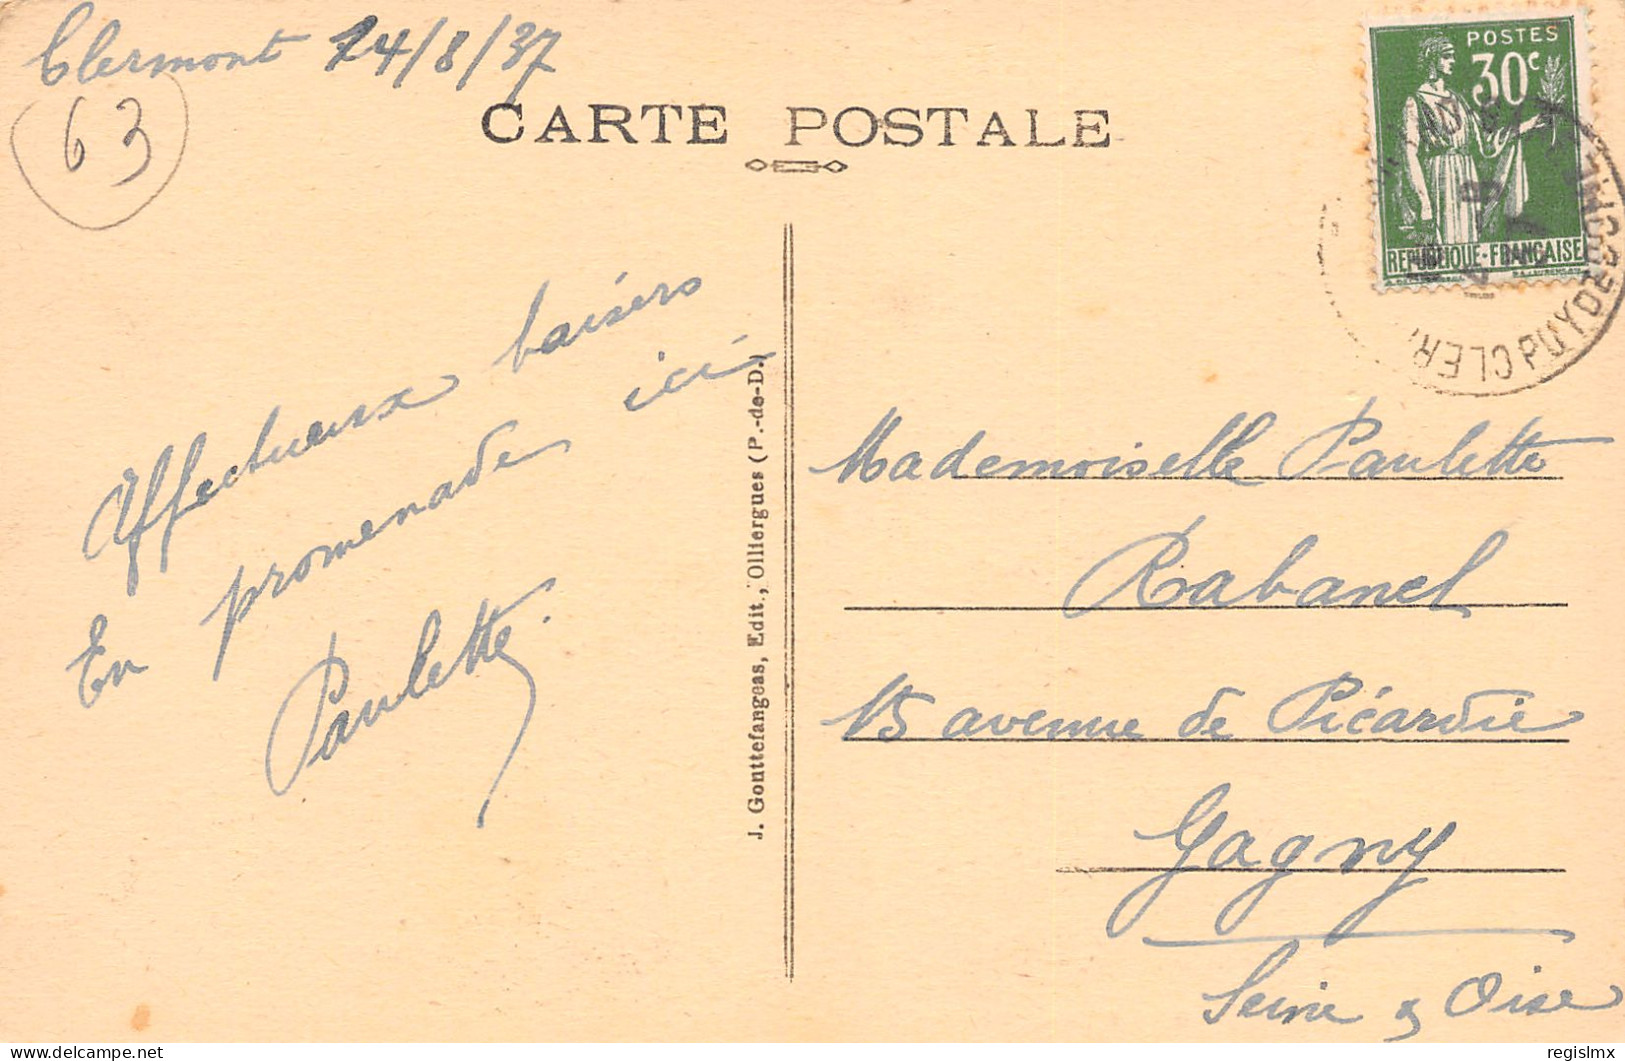 Clermont 24/8/37
63
CARTE POSTALE
POSTES
30c
REPUBLIQUE-FRANÇAISE
PUY DE DOME
CLER
Affectueux baisers
En promenade ici
Paulette.
J. Gouttefangeas, Edit., Olliergues (P.-de-D.)
Mademoiselle Paulette
Rabanel
15 avenue de Picardie
Gagny
Seine & Oise
regislmx